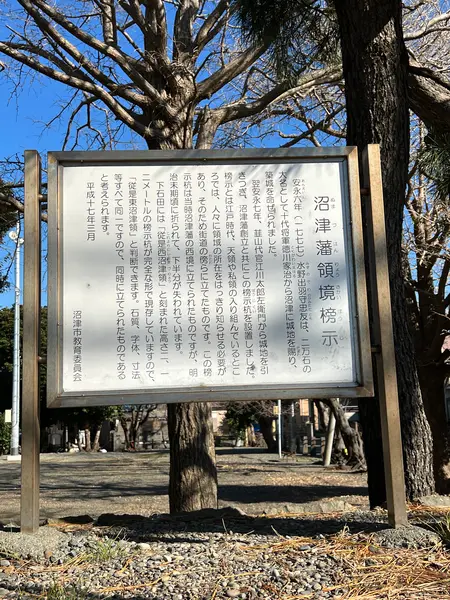 沼津藩領境榜示
ぬまづはんりょうざかいぼうじ
安永六年(一七七七)水野出羽守忠友は、二万石の
大名として十代将軍徳川家治から沼津に城地を賜り、
築城を命ぜられました。
翌安永七年、韮山代官江川太郎左衛門から城地を引
きつぎ、沼津藩創立と共にこの榜示杭を設置しました。
榜示とは江戸時代、天領や私領の入り組んでいるとこ
ろでは、人々に領域の所在をはっきり知らせる必要が
あり、そのため街道の傍らに立てたものです。この榜
示杭は当時沼津藩の西境に立てられたものですが、明
治末期頃に折られて、下半分が失われています。
下石田には、「従是西沼津領」と刻まれた高さ二、一
二メートルの榜示杭が完全な形で現存していますので、
「従是東沼津領」と判断できます。石質、字体、寸法
等すべて同一ですので、同時に立てられたものである
と考えられます。
平成十七年三月
沼津市教育委員会